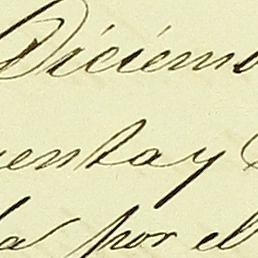 Diciem
enta y
la por el